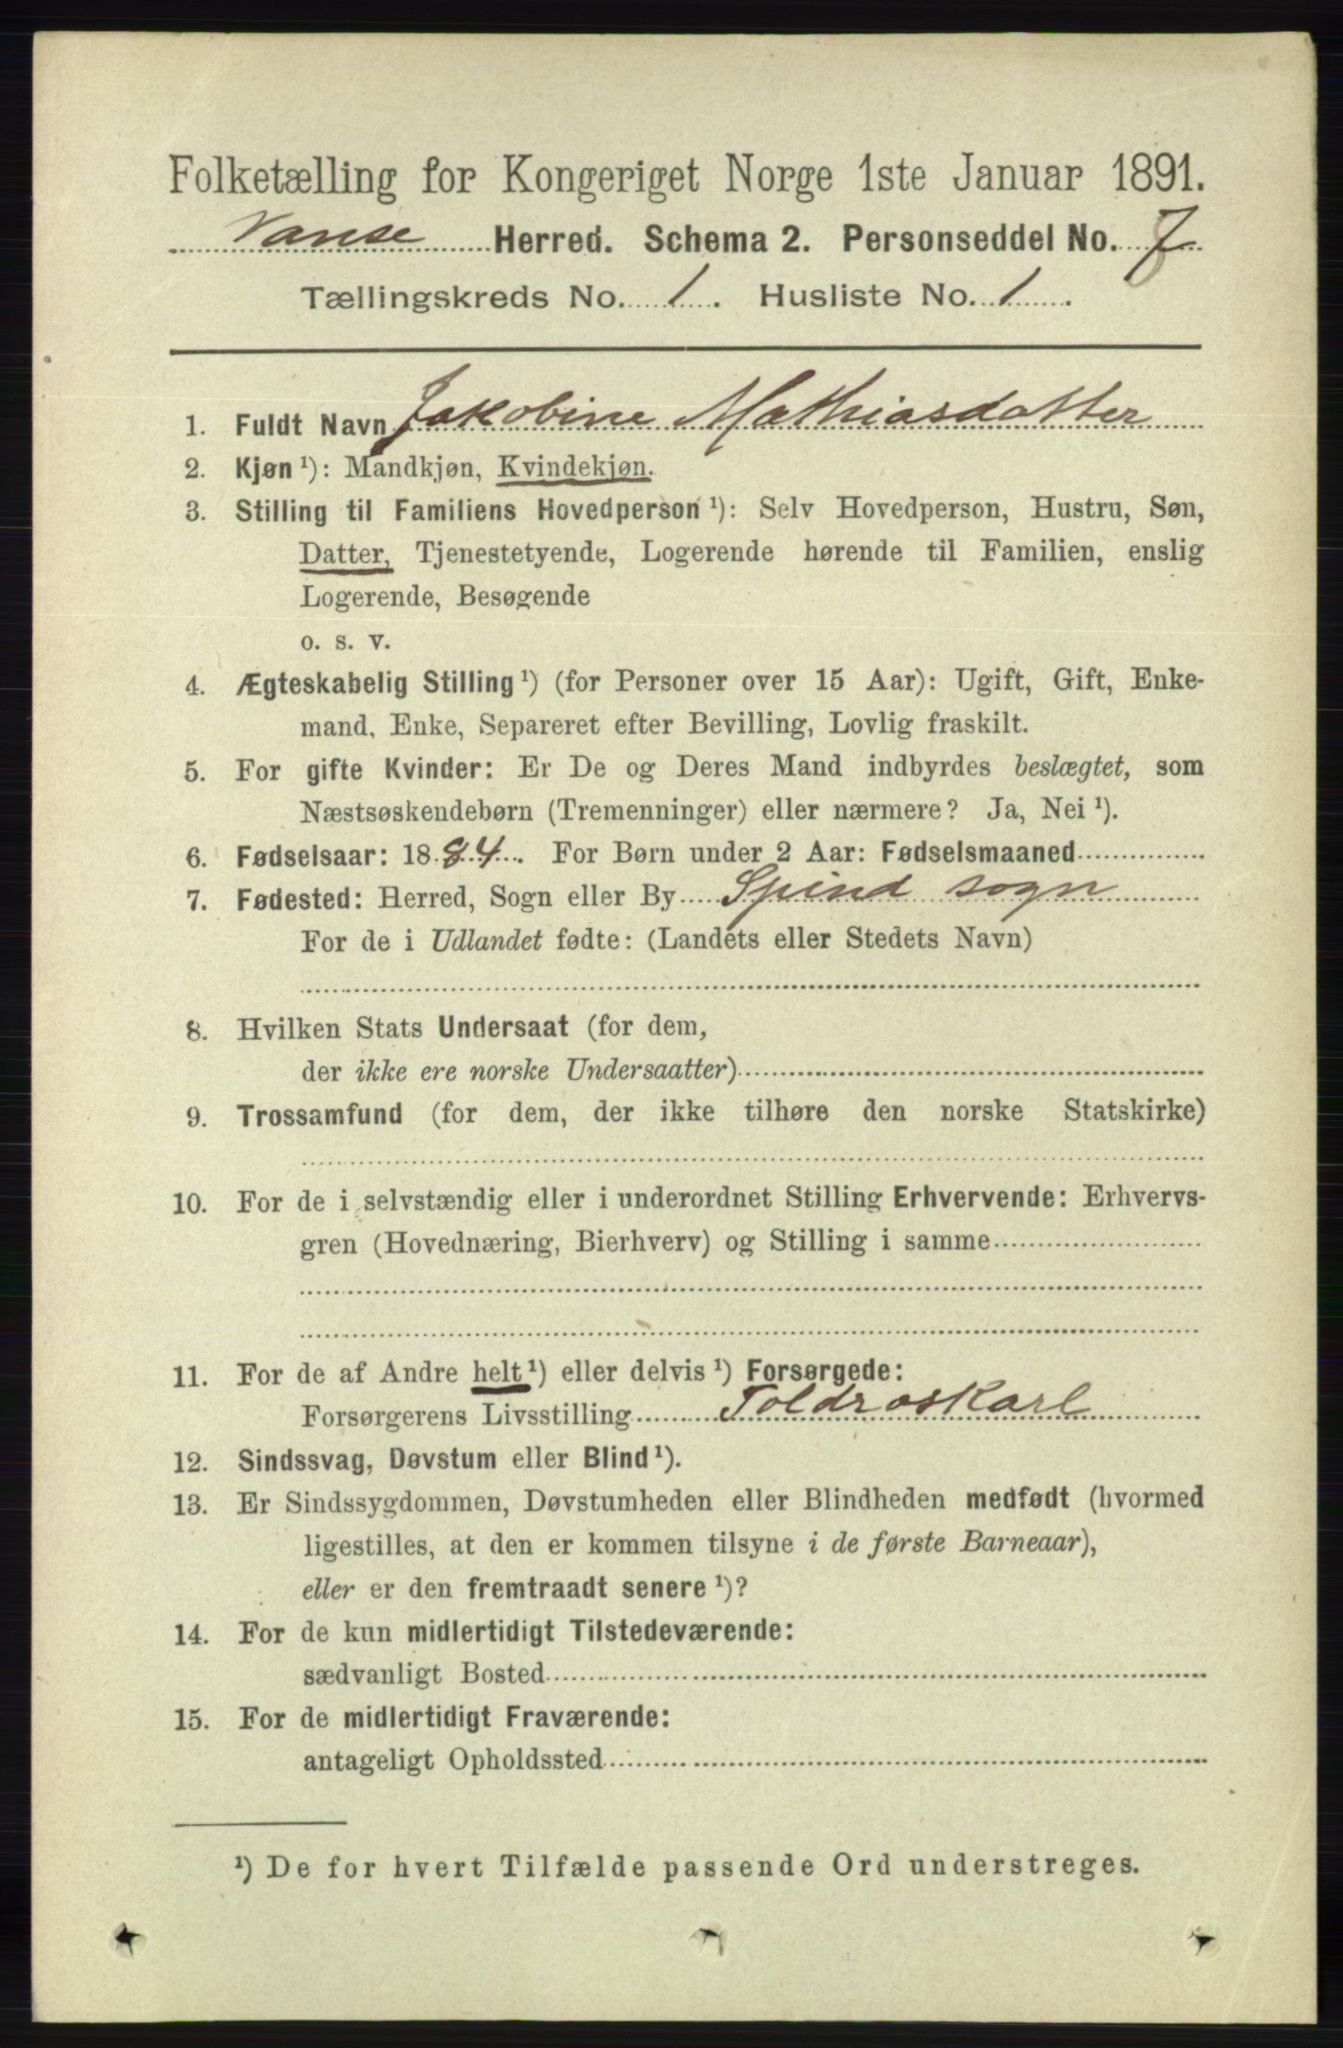 Folketælling for Kongeriget Norge 1ste Januar 1891.
Vanse Herred. Schema 2. Personseddel No. 7
Tællingskreds No. 1. Husliste No. 1.
1. Fuldt Navn Jakobine Mathiasdatter
2. Kjøn ¹): Mandkjøn, Kvindekjøn.
3. Stilling til Familiens Hovedperson ¹): Selv Hovedperson, Hustru, Søn,
Datter, Tjenestetyende, Logerende hørende til Familien, enslig
Logerende, Besøgende
o. s. v.
4. Ægteskabelig Stilling ¹) (for Personer over 15 Aar): Ugift, Gift, Enke-
mand, Enke, Separeret efter Bevilling, Lovlig fraskilt.
5. For gifte Kvinder: Er De og Deres Mand indbyrdes beslægtet, som
Næstsøskendebørn (Tremenninger) eller nærmere? Ja, Nei ¹).
6. Fødselsaar: 1884. For Børn under 2 Aar: Fødselsmaaned
7. Fødested: Herred, Sogn eller By Spind sogn
For de i Udlandet fødte: (Landets eller Stedets Navn)
8. Hvilken Stats Undersaat (for dem,
der ikke ere norske Undersaatter)
9. Trossamfund (for dem, der ikke tilhøre den norske Statskirke)
10. For de i selvstændig eller i underordnet Stilling Erhvervende: Erhvervs-
gren (Hovednæring, Bierhverv) og Stilling i samme
11. For de af Andre helt ¹) eller delvis ¹) Forsørgede:
Forsørgerens Livsstilling Toldroskarl
12. Sindssvag, Døvstum eller Blind ¹).
13. Er Sindssygdommen, Døvstumheden eller Blindheden medfødt (hvormed
ligestilles, at den er kommen tilsyne i de første Barneaar),
eller er den fremtraadt senere ¹)?
14. For de kun midlertidigt Tilstedeværende:
sædvanligt Bosted
15. For de midlertidigt Fraværende:
antageligt Opholdssted
¹) De for hvert Tilfælde passende Ord understreges.